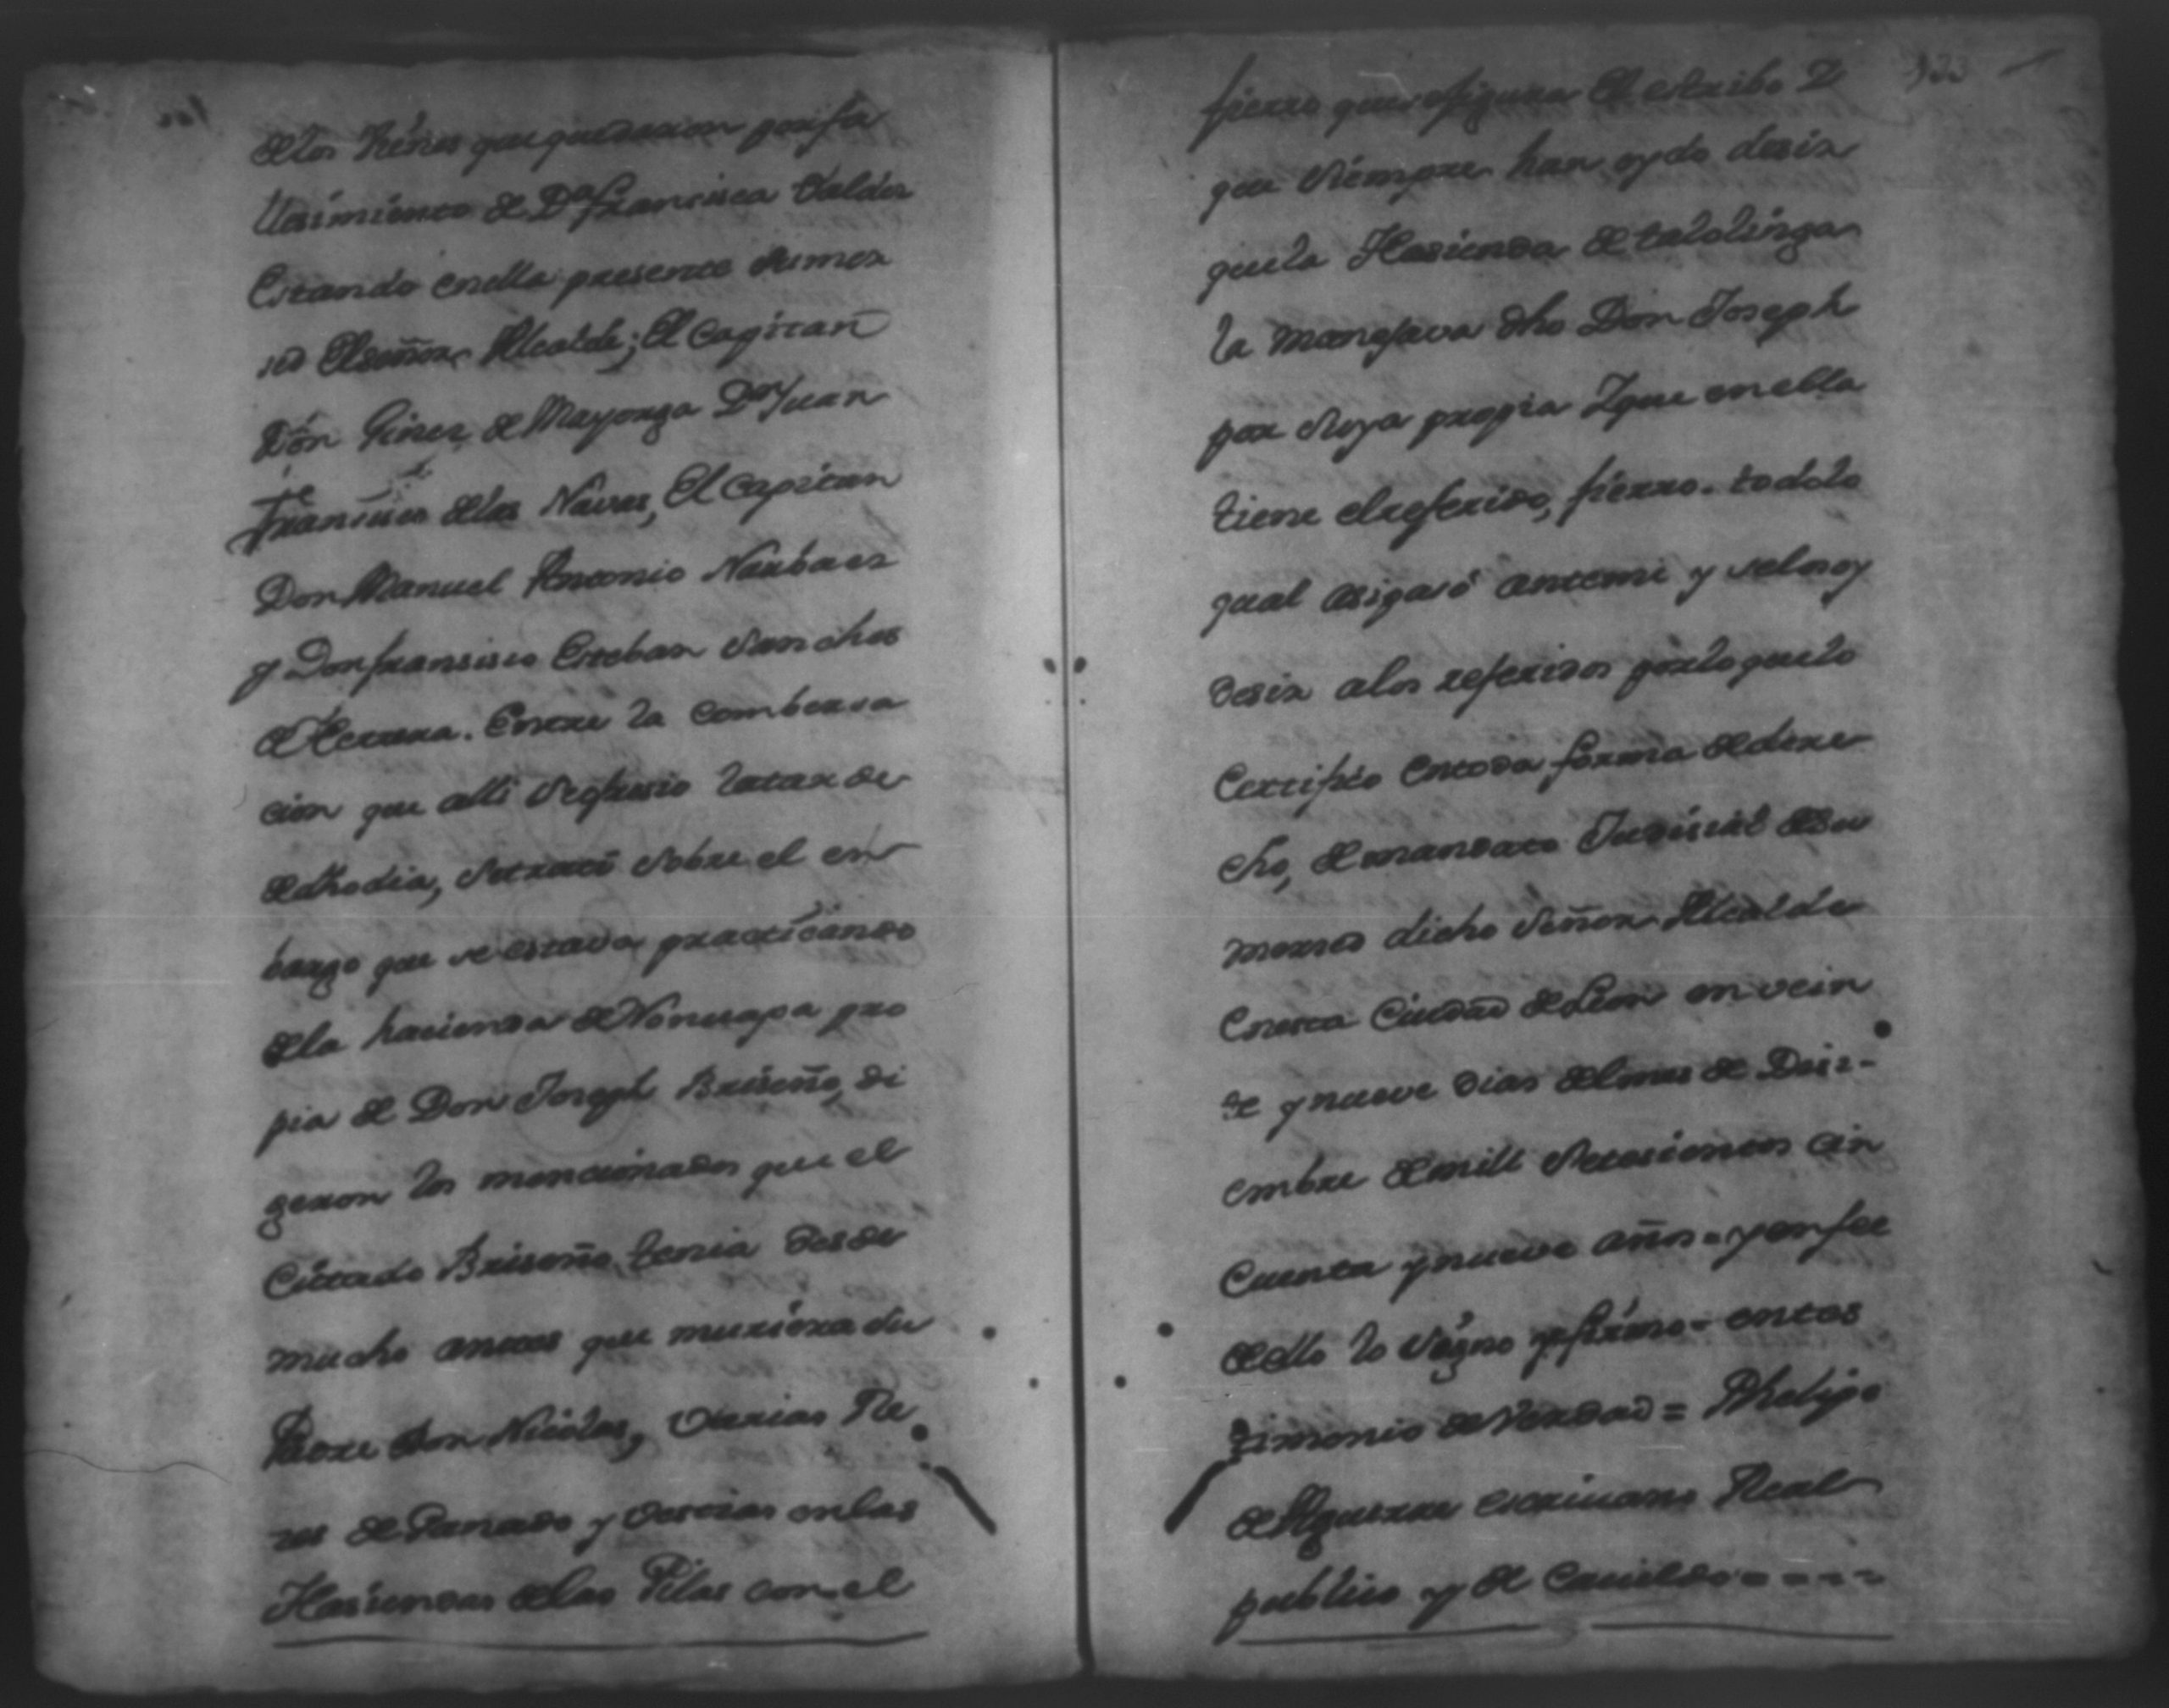 delos vienes que quedaron porfa
llesimiento de Da. francisca Valdes
Estando enella presente sumer
sed Elseñor Alcalde; El Capitan
Don Gines de Mayorga Dn Juan
Francisco delas Navas, El Capitan
Don Manuel Antonio Narbaes
y Don fransisco Esteban Sanches
de Herrera. Entre la combersa
cion que alli se ofresio la tarde
de dho dia, se trató sobre el em
bargo que se estava practicando
dela hacienda de Nonesapa pro
pia de Don Joseph Briseño, di
geron los mencionados que el
Cittado Briseño tenia desde
mucho antes que muriera su
Padre Don Nicolas, Varias Re
ses de Ganado y vestias enlas
Hasiendas delas Pilas con el
133
fierro que figura El estribo Y
que siempre han oydo desir
quela Hasienda de tololinga
la manejava dho Don Joseph
por suya propia Y que en ella
tiene el referido, fierro. todolo
qual asi pasó ante mi y se lo oy
desir alos referidos porlo quelo
Certifico en toda forma de dere
cho, de mandato Judisial de su
mersed dicho Señor Alcalde
En esta Ciudad de Leon en vein
te y nueve dias del mes de Disi-
embre de mill setesientos cin
cuenta y nueve años = y en fee
de ello lo signo y firmo = en tes
timonio de Verdad = Phelipe
de Aguerre escriuano Real
publico y de Cauildo = = = =